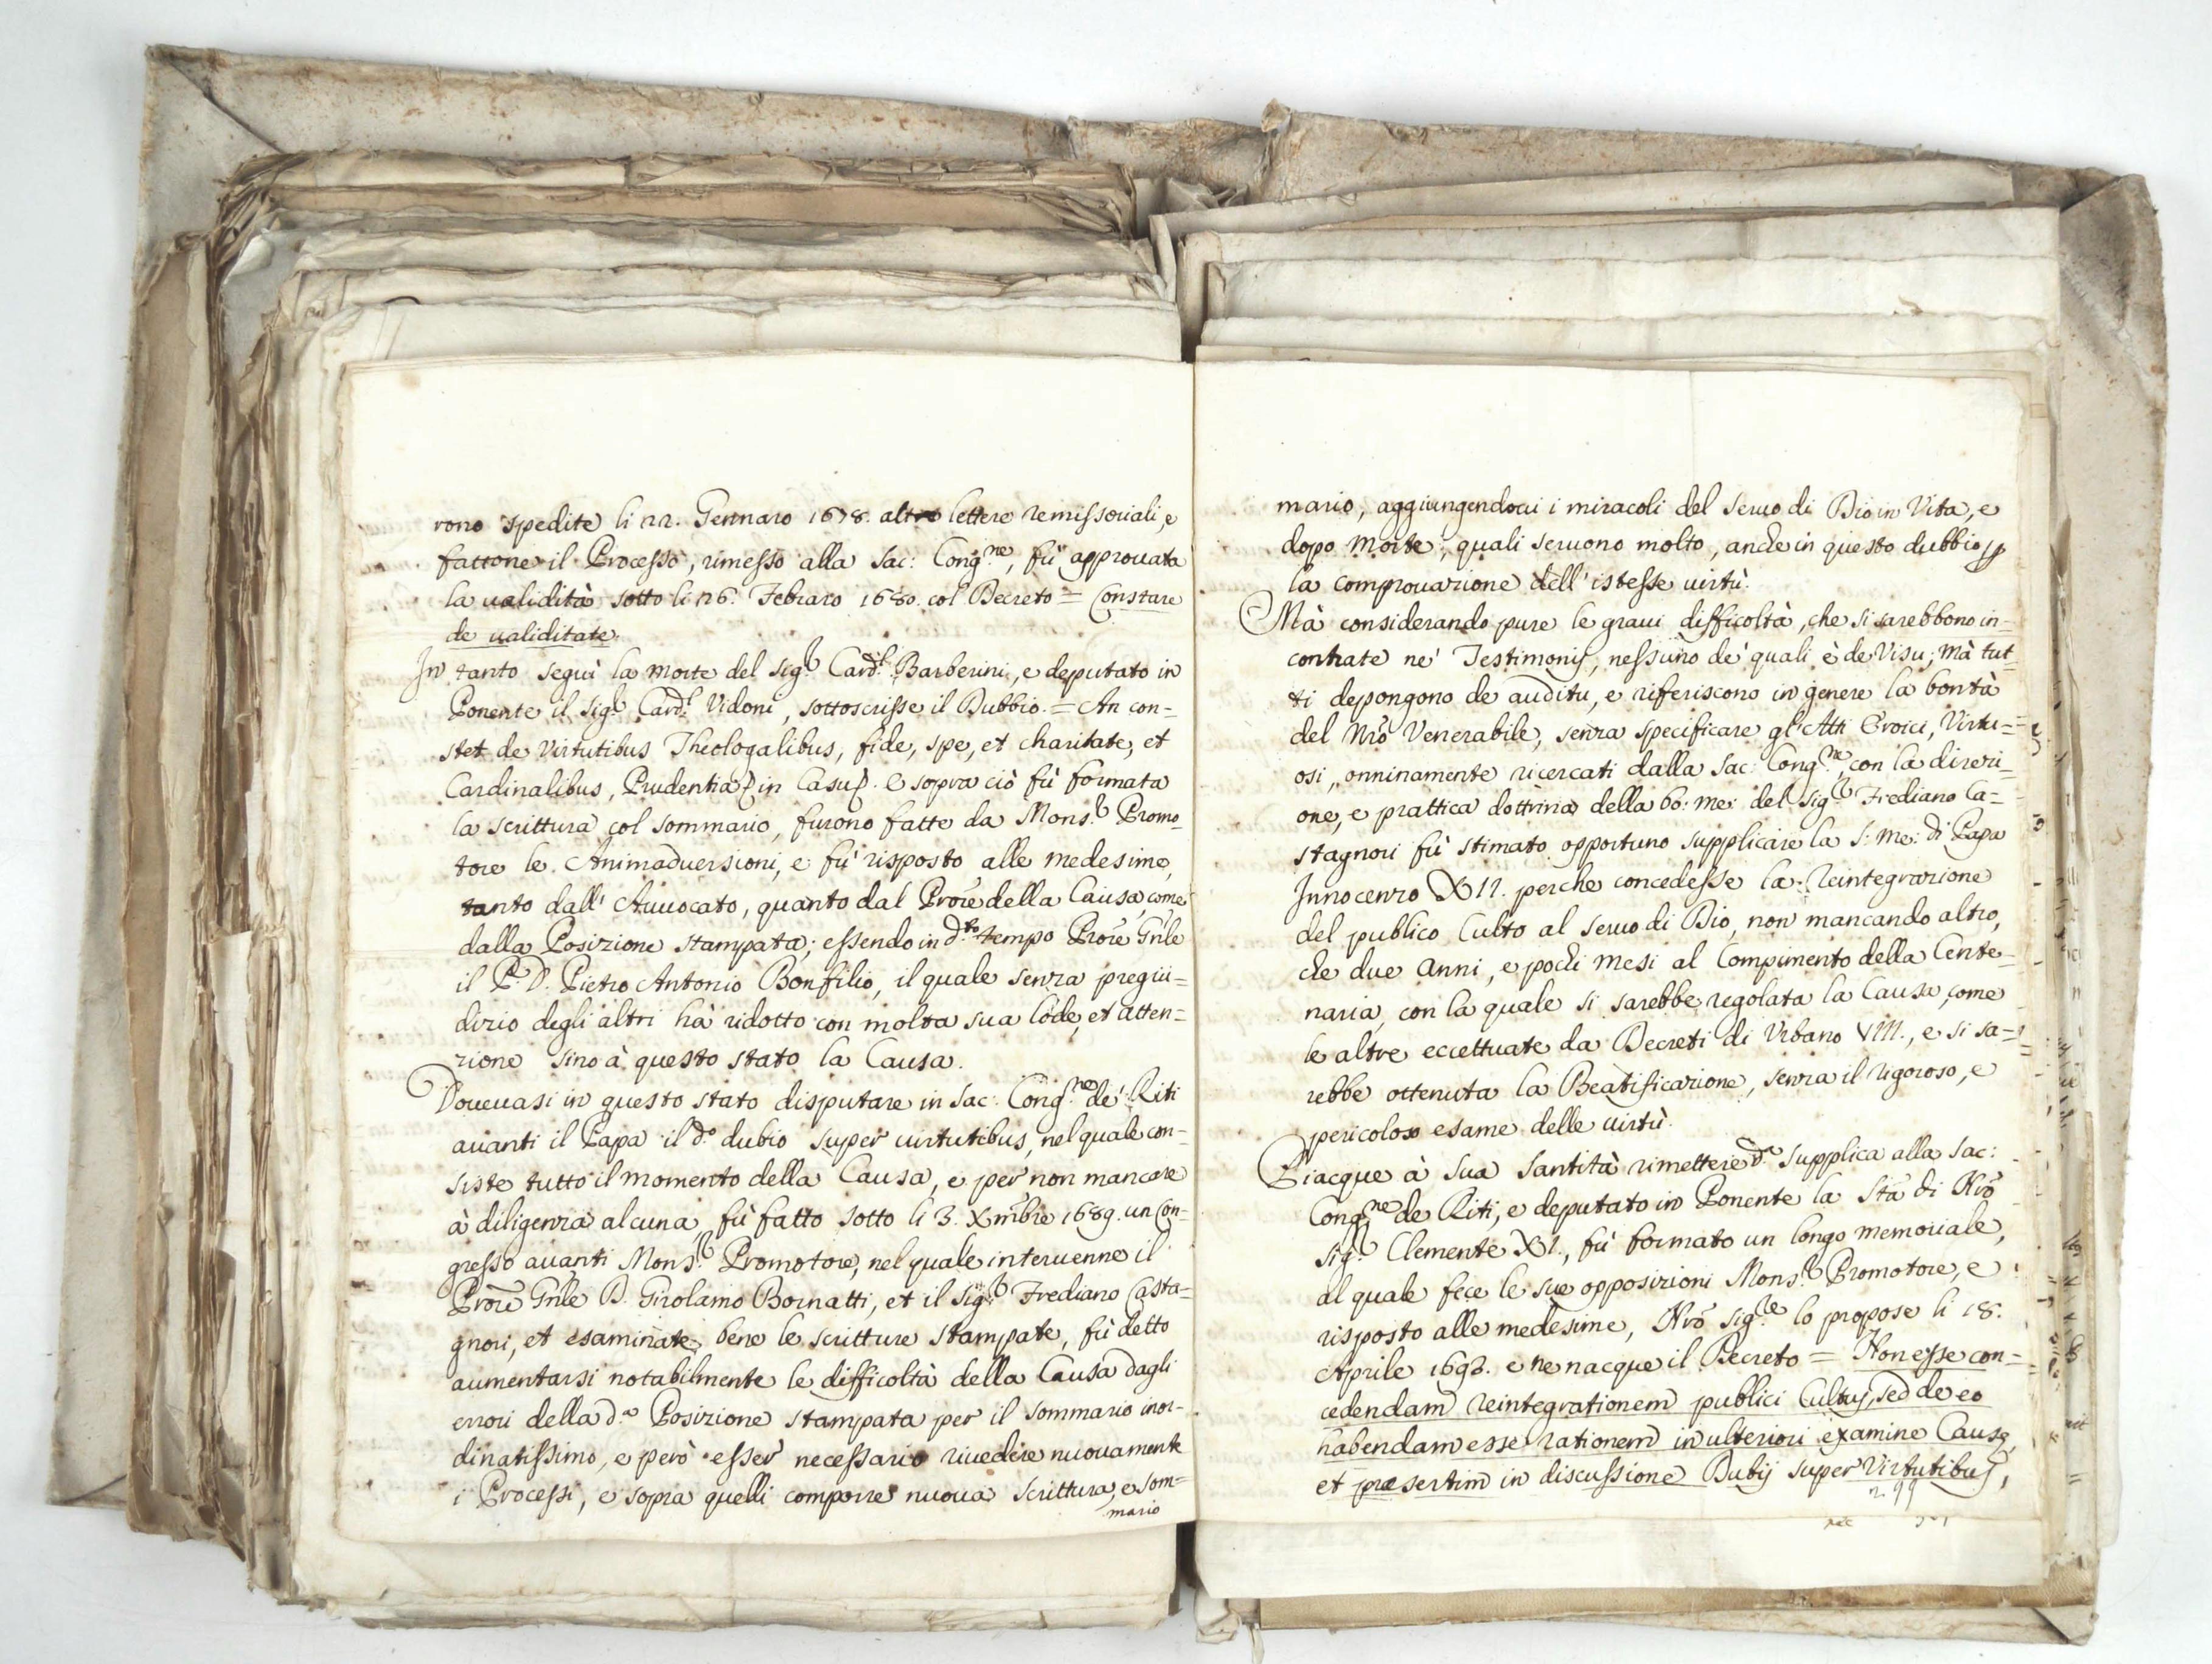 rono spedite li 22. Gennaro 1678. altre lettere remissoriali, e
fattone il Processo, rimesso alla Sac: Cong.ne, fù approuata
la ualidità sotto li 26. Febraro 1680. col Decreto = Constare
de ualiditate.
In tanto seguì la morte del Sig.r Card.l Barberini, e deputato in
Ponente il Sig.r Card.l Vidoni, sottoscrisse il Dubbio = An con=
stet de Virtutibus Theologalibus, fide, spe, et charitate, et
Cardinalibus, Prudentia in Casu. e sopra ciò fù formata
la scrittura col sommario, furono fatte da Mons.r Promo=
tore le Animaduersioni, e fù risposto alle medesime,
tanto dall' Auuocato, quanto dal Prore della Causa, come
dalla Posizione stampata; essendo in d.to tempo Prore Gnle
il P. D. Pietro Antonio Bonfilio, il quale senza pregiu=
dizio degli altri hà ridotto con molta sua lode, et atten=
zione sino à questo stato la Causa.
Doueuasi in questo stato disputare in Sac: Cong.ne de' Riti
auanti il Papa il d.o dubio super uirtutibus, nel quale con=
siste tutto il momento della Causa, e per non mancare
à diligenza alcuna, fù fatto sotto li 3. Xmbre 1689. un Con=
gresso auanti Mons.r Promotore, nel quale interuenne il
Prore Gnle D. Girolamo Bornatti, et il Sig.r Frediano Casta=
gnori, et esaminate bene le scritture stampate, fù detto
aumentarsi notabilmente le difficoltà della Causa dagli
errori della d.a Posizione stampata per il sommario inor=
dinatissimo, e però esser necessario riuedere nuouamente
i Processi, e sopra quelli comporre nuoua scrittura, e som=
mario
mario, aggiungendoui i miracoli del Seruo di Dio in Vita, e
dopo Morte; quali seruono molto, anche in questo dubbio p
la comprouazione dell' istesse uirtù.
Mà considerando pure le graui difficoltà, che si sarebbono in=
contrate ne' Testimonij, nessuno de' quali è de Visu; mà tut=
ti depongono de auditu, e riferiscono in genere la bontà
del Nro Venerabile, senza specificare gl' Atti Eroici, Virtu=
osi, onninamente ricercati dalla Sac: Cong.ne, con la direzi=
one, e prattica dottrina della bo: me: del Sig.r Frediano Ca=
stagnori fù stimato opportuno supplicare la S: me: di Papa
Innocenzo XII. perche concedesse la Reintegrazione
del publico Culto al Seruo di Dio, non mancando altro,
che due anni, e pochi mesi al Compimento della Cente=
naria, con la quale si sarebbe regolata la Causa, come
le altre eccettuate da Decreti di Vrbano VIII., e si sa=
rebbe ottenuta la Beatificazione, senza il rigoroso, e
pericoloso esame delle uirtù.
Piacque à Sua Santità rimettere d.a supplica alla Sac:
Cong.ne de Riti, e deputato in Ponente la Stà di Nro
Sig.r Clemente XI., fù formato un longo memoriale,
al quale fece le sue opposizioni Mons.r Promotore, e
risposto alle medesime, Nro Sig.re lo propose li 18.
Aprile 1693. e ne nacque il Decreto = Non esse con=
cedendam reintegrationem publici Cultus, sed de eo
habendam esse rationem in ulteriori examine Causæ,
et præsertim in discussione Dubij super Virtutibus,